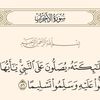 سورة الأحزاب
بسم الله الرحمن الرحيم
ئكته يصلون على النبي يأيها
عليه وسلموا تسليما